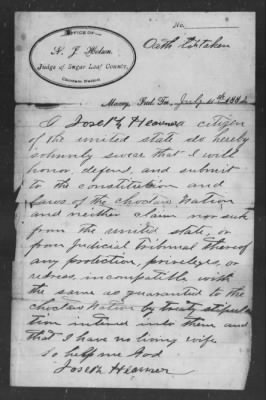 No.
OFFICE OF
N. J. Holson,
Judge of Sugar Loaf County,
Choctaw Nation
Oath to taken
Maxey, Ind. Ter., July
I Joseph Heavner citizen
of the united state do hereby
solemnly swear that I will
honor, defend, and submit
to the constitution and
Laws of the choctaw Nation
and neither claim nor seek
from the united state, or
from Judicial Tribunal thereof
any protection, priveleges, or
redress, incompatible with
the same as guaranted to the
choctaw Nation by treaty stipula
tion intered into them and
that I have no living wife
So help me God
Joseph Heavner